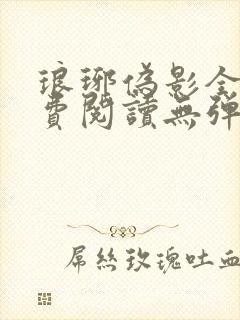 琅琊偽影全
費閱讀無彈
屌絲玫瑰吐血